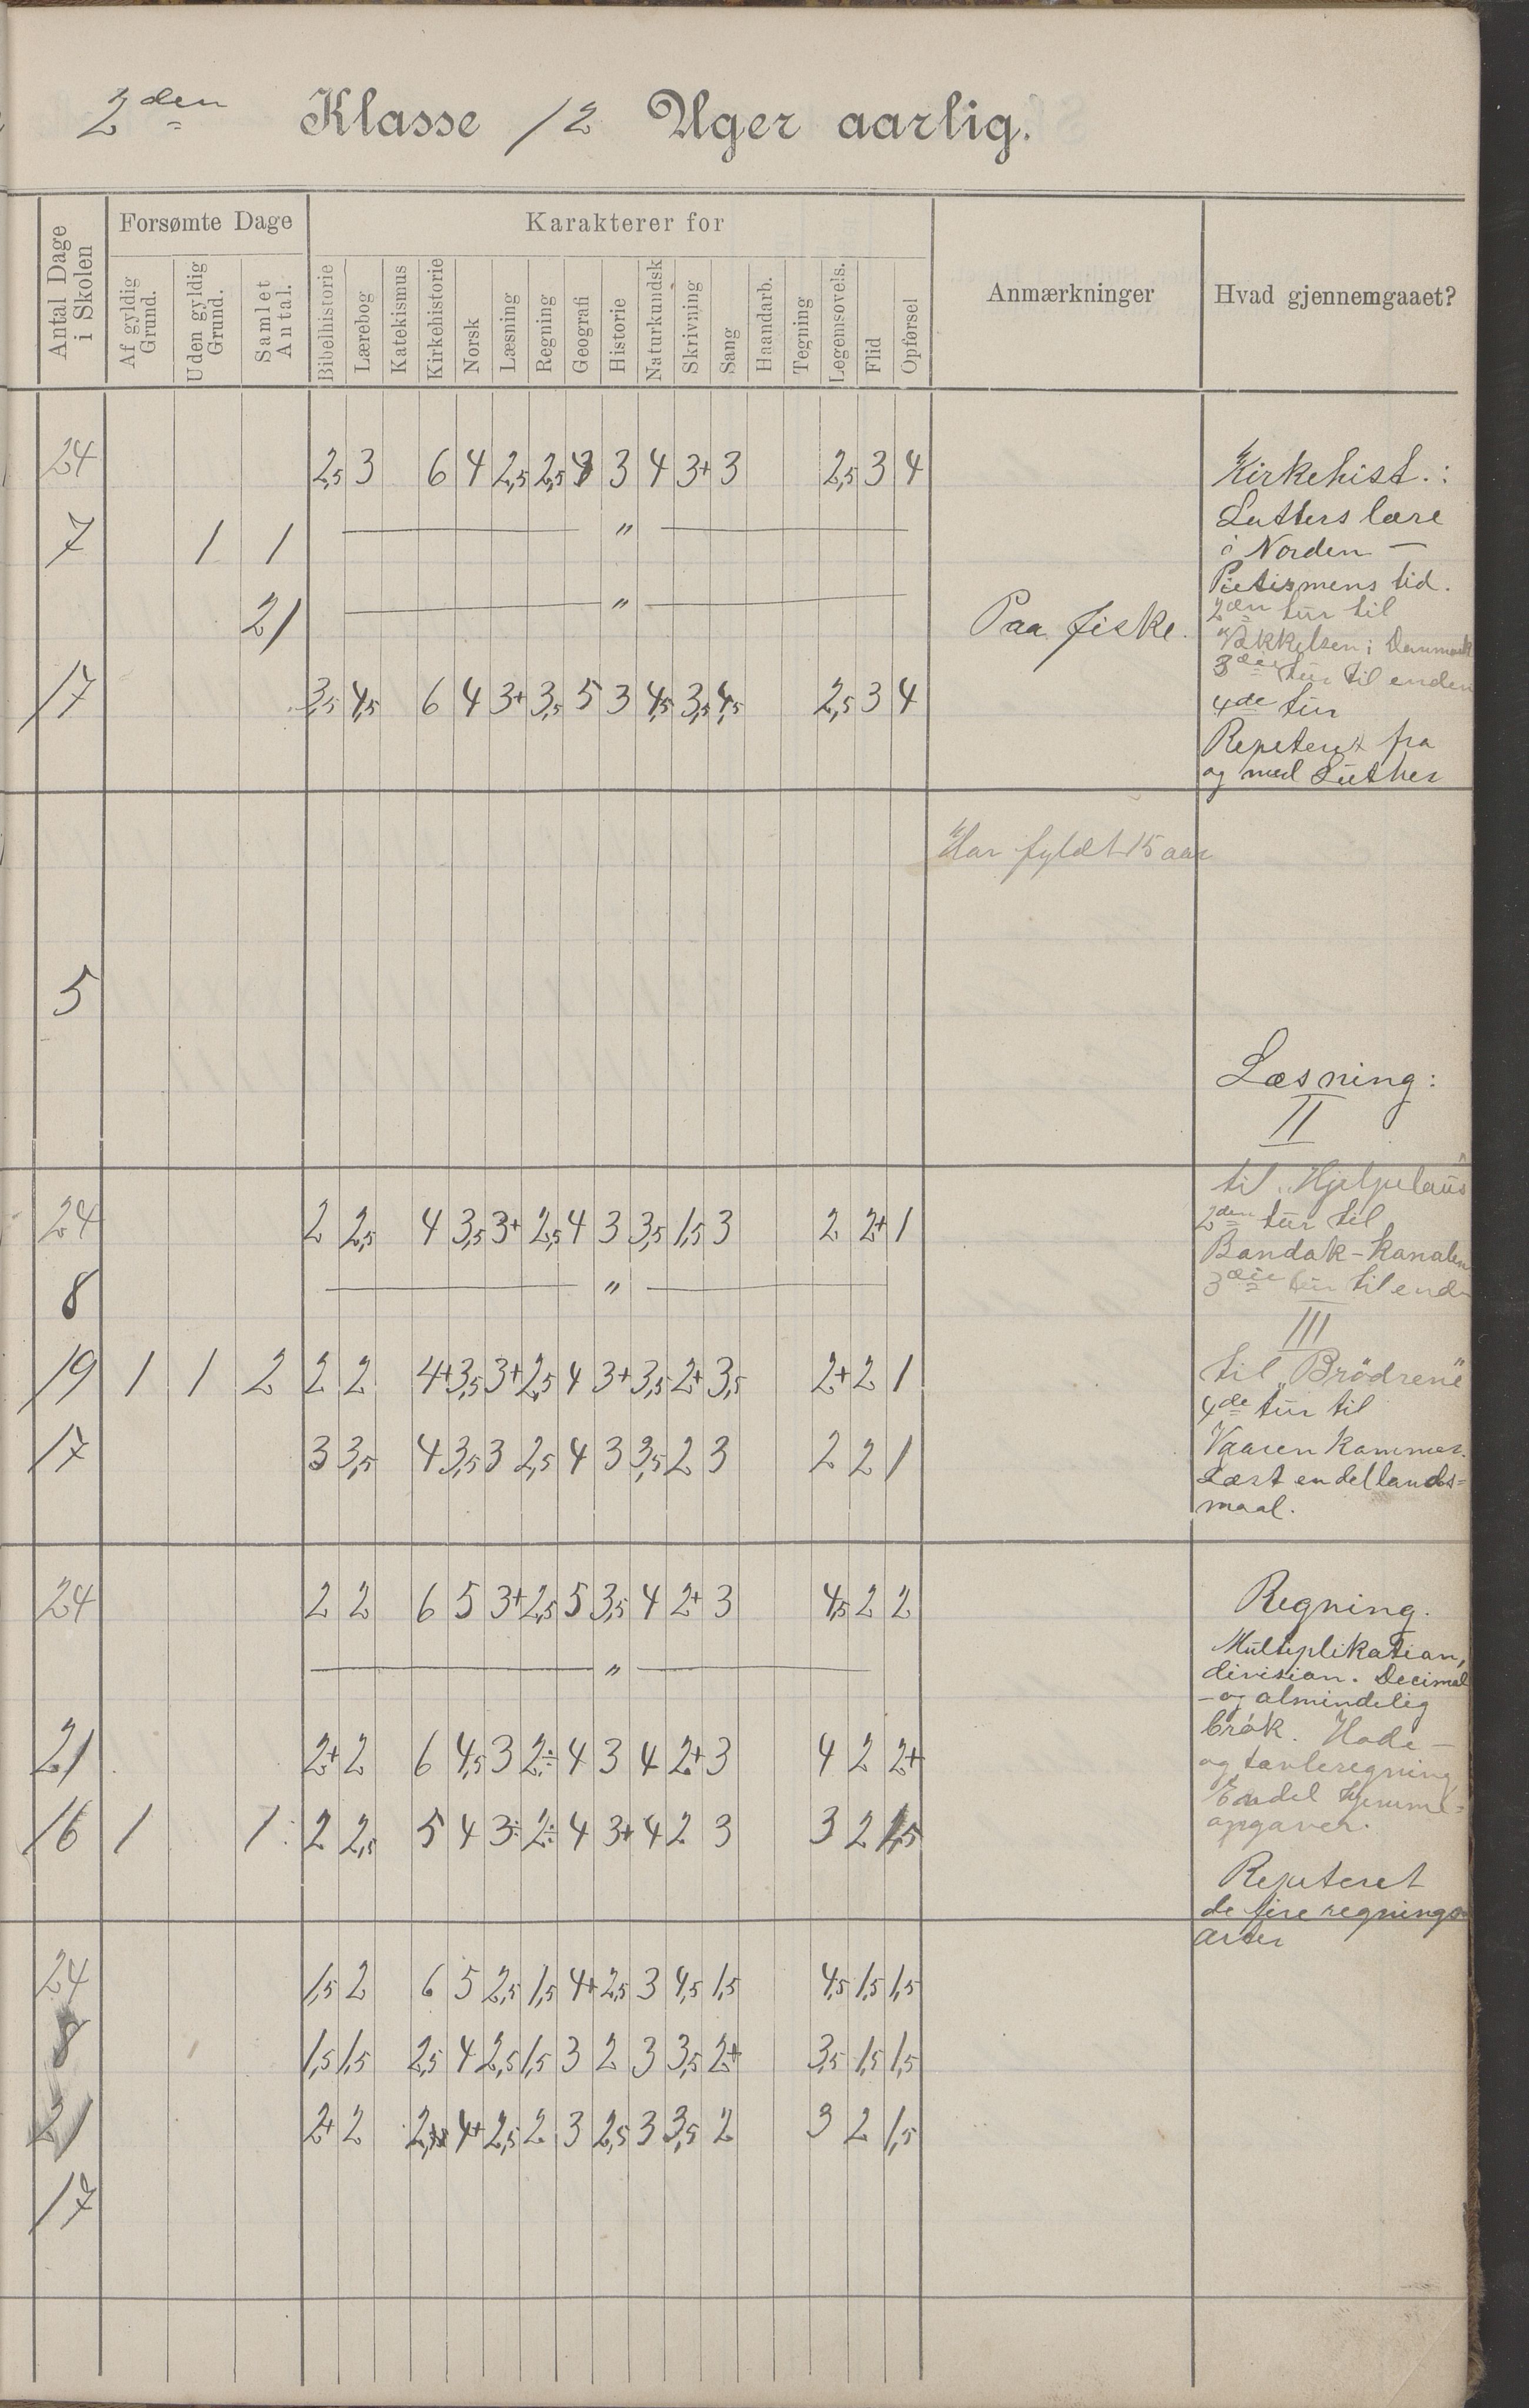 2den Klasse 12 Uger aarlig.
Antal Dage i Skolen
Forsømte Dage
Karakterer for
Anmærkninger
Hvad gjennemgaaet?
Af gyldig Grund.
Uden gyldig Grund.
Samlet Antal.
Bibelhistorie
Lærebog
Katekismus
Kirkehistorie
Norsk
Læsning
Regning
Geografi
Historie
Naturkundsk
Skrivning
Sang
Haandarb.
Tegning
Legemsovels.
Flid
Opførsel
24 2,5 3 6 4 2,5 2,5 3 4 3+ 3 2,5 3 4
7 1 1 — " —
21 — " — Paa fiske.
17 3,5 4,5 6 4 3+ 3,5 5 3 4,5 3,5 4,5 2,5 3 4
Kirkehist.:
Lutters lære
i Norden —
Pietismens tid.
2den tur til
Vækkelsen i Danmark
3die tur til enden
4de tur
Repetert fra
og med Luther
Har fyldt 15 aar
5
Læsning:
II
24 2 2,5 4 3,5 3+ 2,5 4 3 3,5 1,5 3 2 2+ 1
8 — " —
19 1 1 2 2 2 4+ 3,5 3+ 2,5 4 3+ 3,5 2+ 3,5 2+ 2 1
17 3 3,5 4 3,5 3 2,5 4 3 3,5 2 3 2 2 1
til „Hjelpelaus"
2den tur til
Bandak-kanalen
3die tur til enden
III
til „Brödrene"
4de tur til
Vaaren kommer.
Læst en del lands=
maal.
24 2 2 6 5 3+ 2,5 5 3,5 4 2+ 3 4,5 2 2
— " —
21 2+ 2 6 4,5 3 2÷ 4 3 4 2+ 3 4 2 2+
16 1 1 2 2,5 5 4 3÷ 2÷ 4 3+ 4 2 3 3 2 1,5
Regning.
Multiplikation,
division. Decimal
- og almindelig
brøk. Hode-
og tavleregning
En del hjemme=
opgaver.
Repeteret
de fire regnings=
arter
24 1,5 2 6 5 2,5 1,5 4+ 2,5 3 4,5 1,5 4,5 1,5 1,5
8 1,5 1,5 2,5 4 2,5 1,5 3 2 3 3,5 2+ 3,5 1,5 1,5
21 2+ 2 4+ 2,5 2 3 2,5 3 3,5 2 3 2 1,5
17